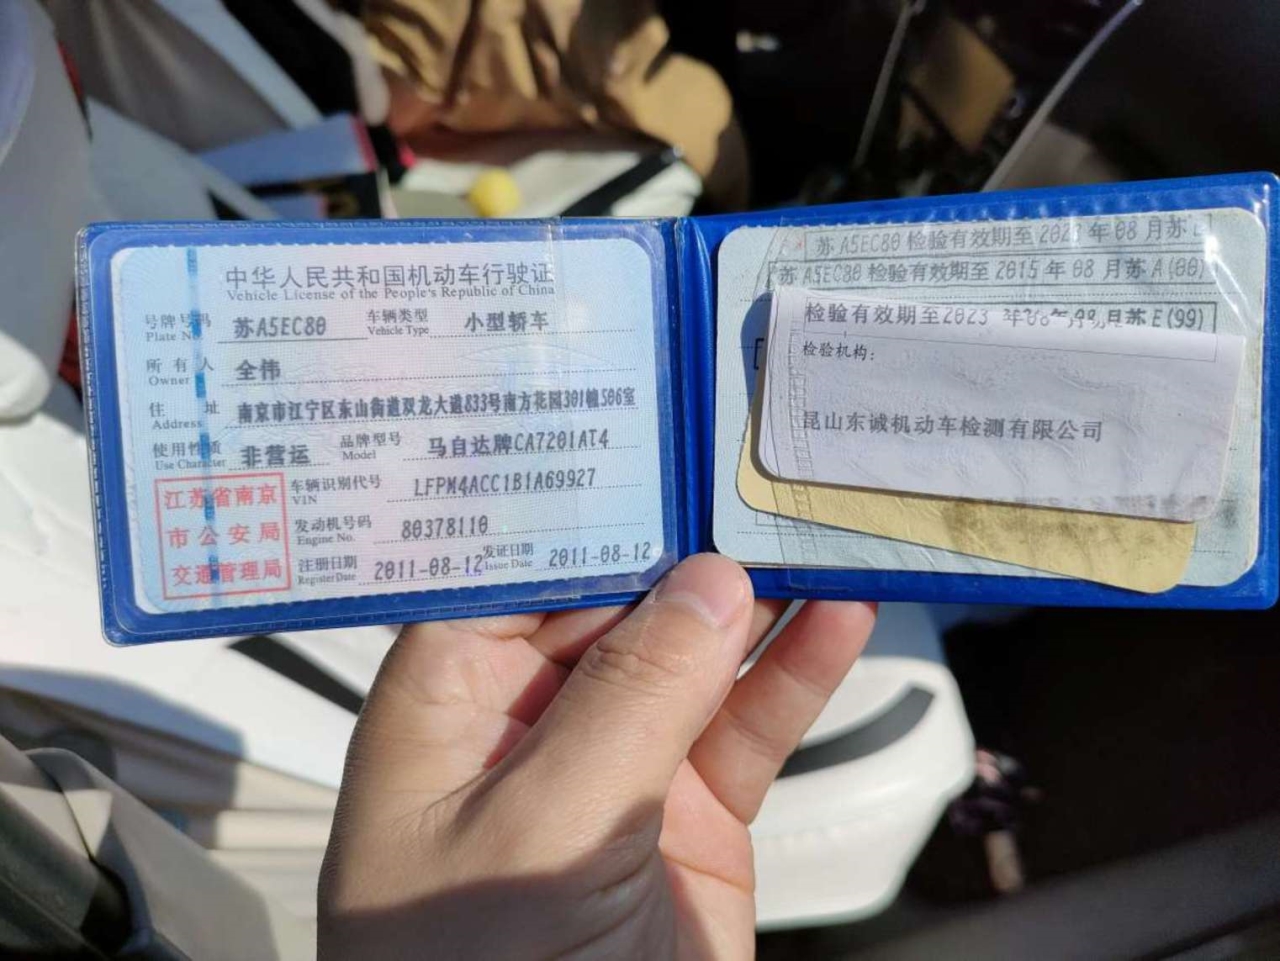 中华人民共和国机动车行驶证
Vehicle License of the People's Republic of China
号牌号码 苏A5EC80 车辆类型 小型轿车
Plate No. Vehicle Type
所有人 全伟
Owner
住址 南京市江宁区东山街道双龙大道833号南方花园301幢506室
Address
使用性质 非营运 品牌型号 马自达牌CA7201AT4
Use Character Model
车辆识别代号 LFPM4ACC1B1A69927
VIN
发动机号码 80378110
Engine No.
注册日期 2011-08-12 发证日期 2011-08-12
Register Date Issue Date
江苏省南京
市公安局
交通管理局
苏A5EC80检验有效期至2023年08月苏
苏A5EC80检验有效期至2015年08月苏A(00)
检验有效期至2023 年08月苏E(99)
检验机构:
昆山东诚机动车检测有限公司